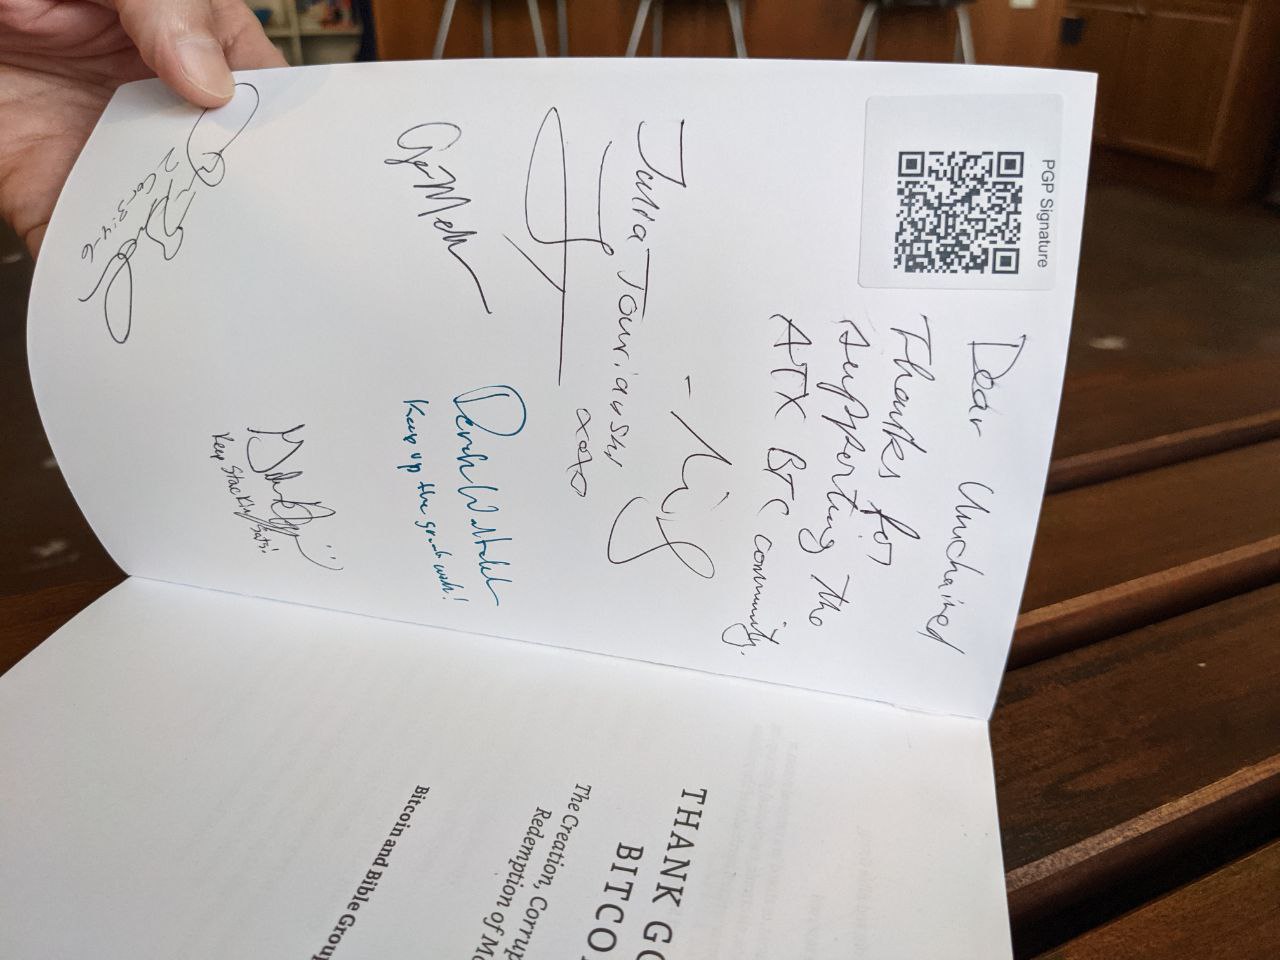 PGP Signature
Dear Unchained
Thanks for
supporting the
ATX BTC community.
Julia Tourianski
xoxo
Keep up the great work!
Keep Stacking Sats!
2 Cor 3:4-6
THANK GO
BITCO
The Creation, Corrup
Redemption of Mo
Bitcoin and Bible Group